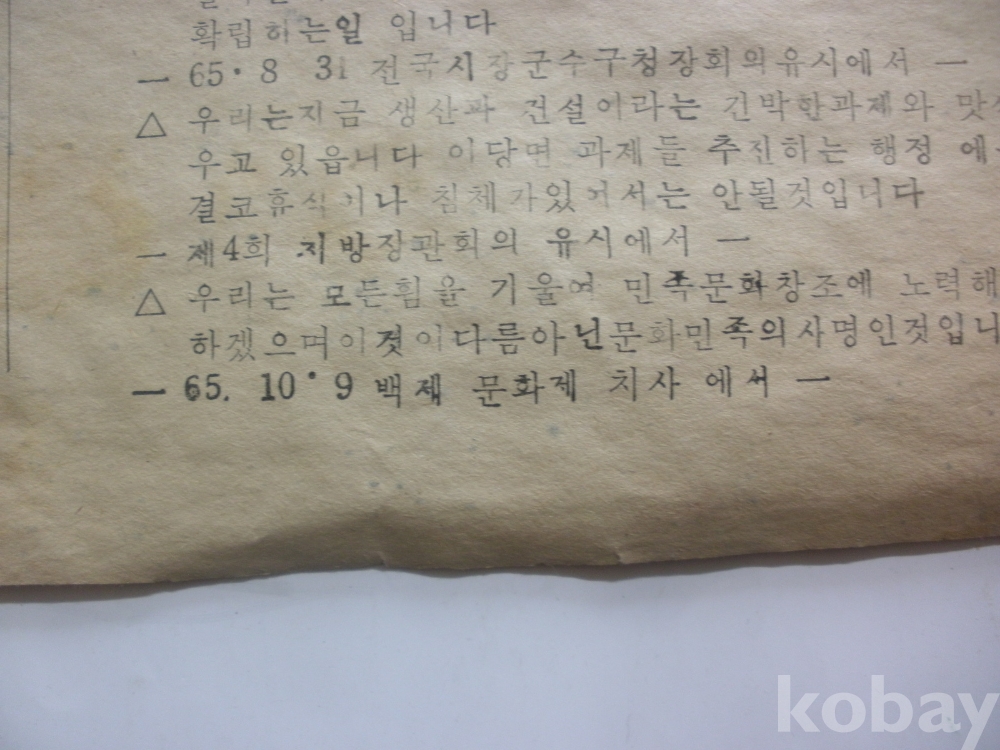 확립하는일 입니다
— 65. 8 31 전국시장군수구청장회의유시에서 —
△ 우리는지금 생산과 건설이라는 긴박한과제와 맞
우고 있읍니다 이당면 과제를 추진하는 행정 에
결코휴식이나 침체가있어서는 안될것입니다
— 제4회 지방장관회의 유시에서 —
△ 우리는 모든힘을 기울여 민족문화창조에 노력해
하겠으며이것이다름아닌문화민족의사명인것입니
— 65. 10. 9 백제 문화제 치사 에서 —
kobay